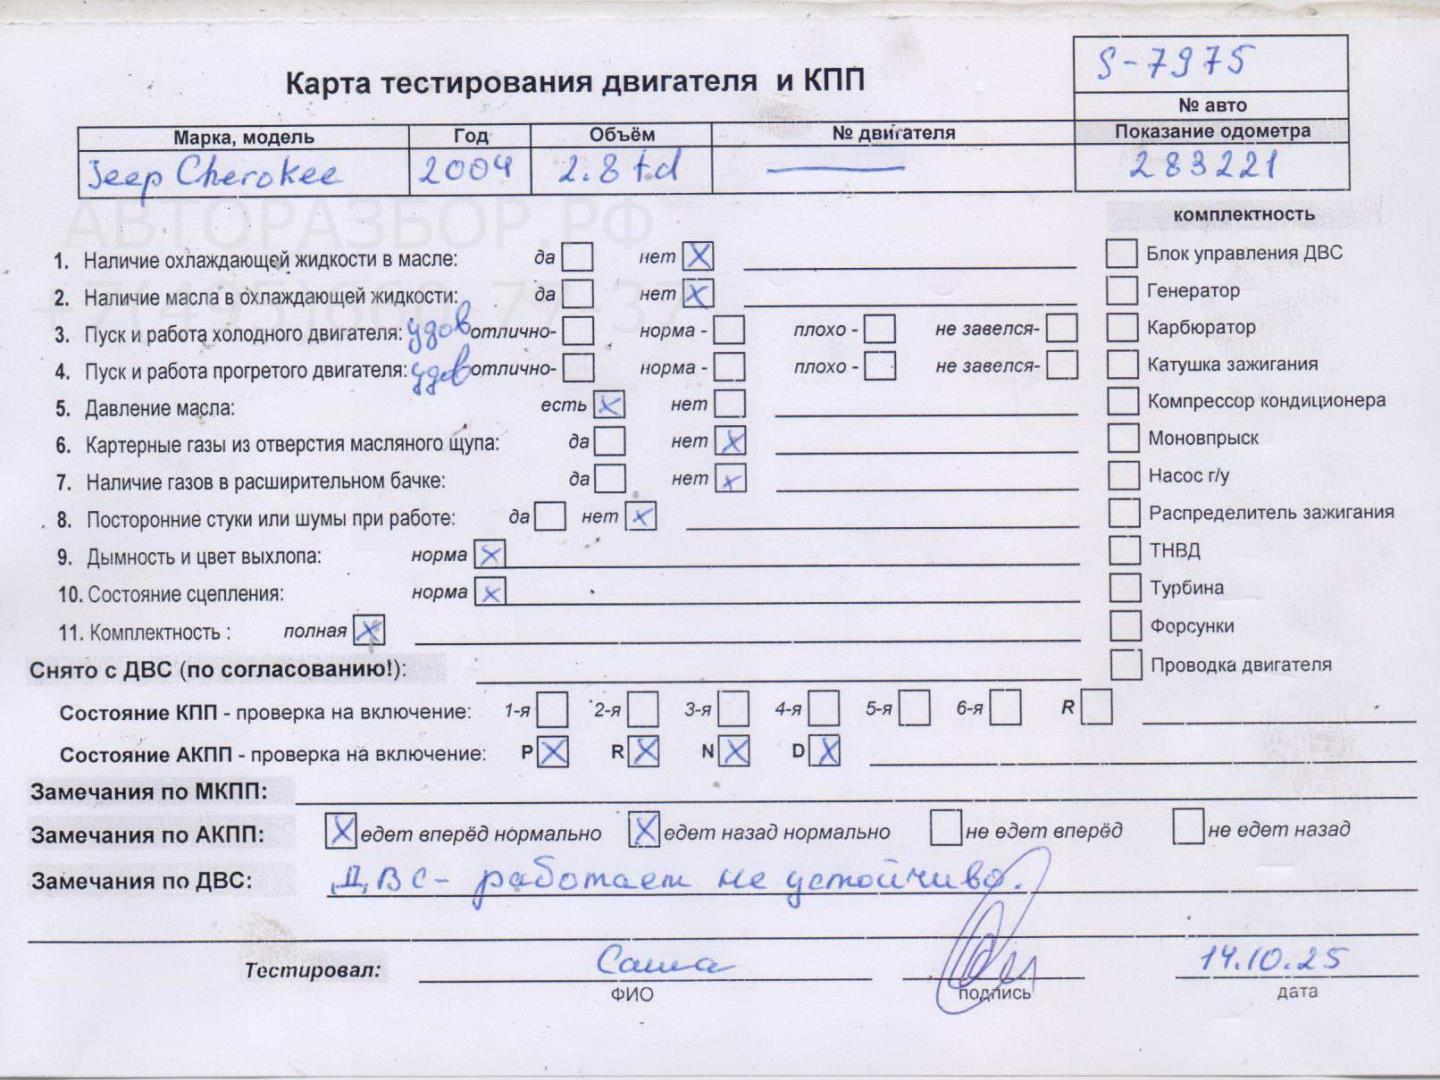 S-7975
Карта тестирования двигателя и КПП
№ авто
Марка, модель Год Объём № двигателя Показание одометра
Jeep Cherokee 2004 2.8 td — 283221
АВТОРАЗБОР.РФ
комплектность
1. Наличие охлаждающей жидкости в масле: да нет X Блок управления ДВС
2. Наличие масла в охлаждающей жидкости: да нет X Генератор
3. Пуск и работа холодного двигателя: удов отлично- норма - плохо - не завелся- Карбюратор
4. Пуск и работа прогретого двигателя: удов отлично- норма - плохо - не завелся- Катушка зажигания
5. Давление масла: есть X нет Компрессор кондиционера
6. Картерные газы из отверстия масляного щупа: да нет X Моновпрыск
7. Наличие газов в расширительном бачке: да нет X Насос г/у
8. Посторонние стуки или шумы при работе: да нет X Распределитель зажигания
9. Дымность и цвет выхлопа: норма X ТНВД
10. Состояние сцепления: норма X Турбина
11. Комплектность : полная X Форсунки
Снято с ДВС (по согласованию!): Проводка двигателя
Состояние КПП - проверка на включение: 1-я 2-я 3-я 4-я 5-я 6-я R
Состояние АКПП - проверка на включение: P X R X N X D X
Замечания по МКПП:
Замечания по АКПП: X едет вперёд нормально X едет назад нормально не едет вперёд не едет назад
Замечания по ДВС: ДВС- работает не устойчиво.
Тестировал: Саша 14.10.25
ФИО подпись дата